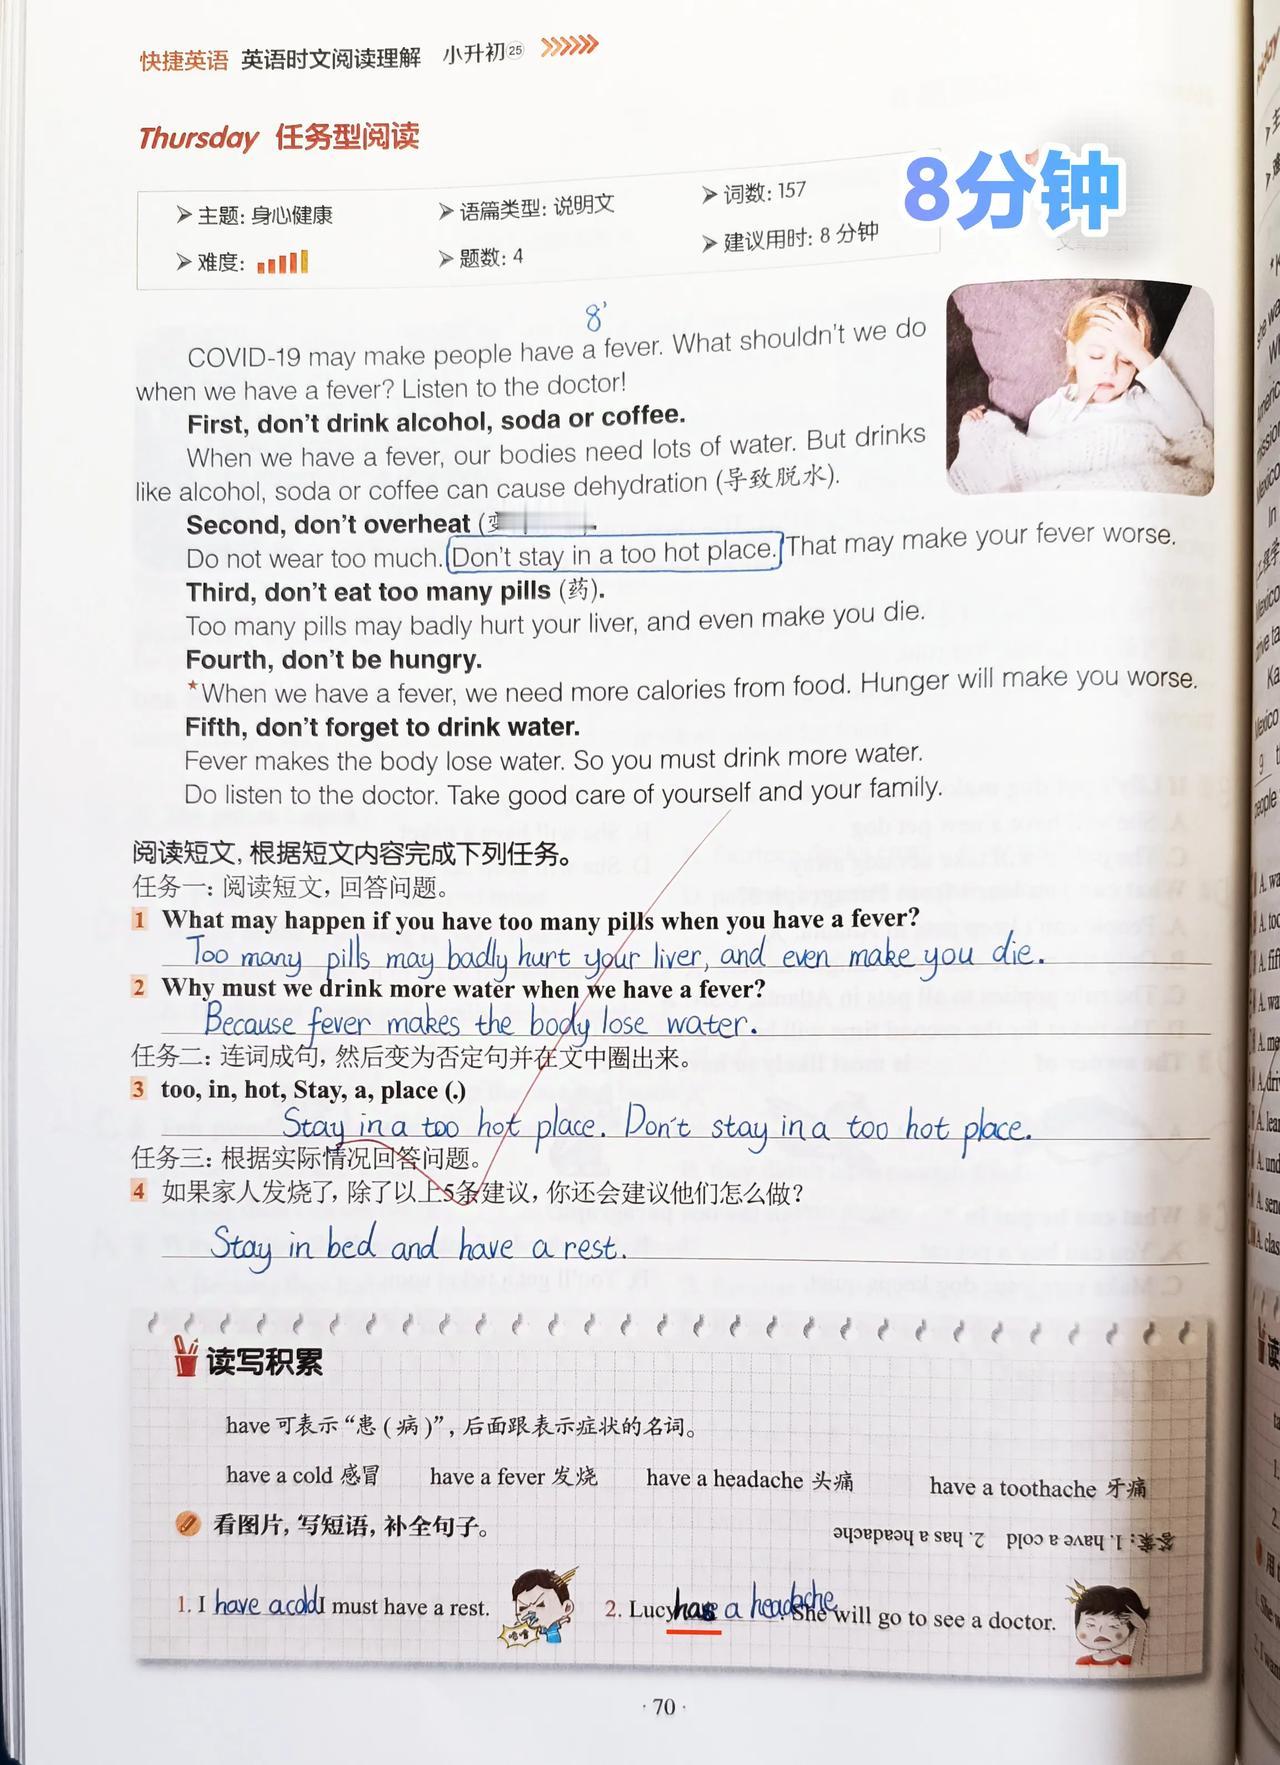 快捷英语 英语时文阅读理解 小升初㉕
Thursday 任务型阅读
8分钟
➤ 主题: 身心健康 ➤ 语篇类型: 说明文 ➤ 词数: 157
➤ 难度: ➤ 题数: 4 ➤ 建议用时: 8 分钟
8'
COVID-19 may make people have a fever. What shouldn't we do
when we have a fever? Listen to the doctor!
First, don't drink alcohol, soda or coffee.
When we have a fever, our bodies need lots of water. But drinks
like alcohol, soda or coffee can cause dehydration (导致脱水).
Second, don't overheat
Do not wear too much. Don't stay in a too hot place. That may make your fever worse.
Third, don't eat too many pills (药).
Too many pills may badly hurt your liver, and even make you die.
Fourth, don't be hungry.
*When we have a fever, we need more calories from food. Hunger will make you worse.
Fifth, don't forget to drink water.
Fever makes the body lose water. So you must drink more water.
Do listen to the doctor. Take good care of yourself and your family.
阅读短文, 根据短文内容完成下列任务。
任务一: 阅读短文, 回答问题。
1 What may happen if you have too many pills when you have a fever?
Too many pills may badly hurt your liver, and even make you die.
2 Why must we drink more water when we have a fever?
Because fever makes the body lose water.
任务二: 连词成句, 然后变为否定句并在文中圈出来。
3 too, in, hot, Stay, a, place (.)
Stay in a too hot place. Don't stay in a too hot place.
任务三: 根据实际情况回答问题。
4 如果家人发烧了, 除了以上5条建议, 你还会建议他们怎么做?
Stay in bed and have a rest.
读写积累
have 可表示“患 (病)”, 后面跟表示症状的名词。
have a cold 感冒 have a fever 发烧 have a headache 头痛 have a toothache 牙痛
看图片, 写短语, 补全句子。
答案: 1. have a cold 2. has a headache
1. I have a cold I must have a rest. 2. Lucy has a headache. She will go to see a doctor.
· 70 ·